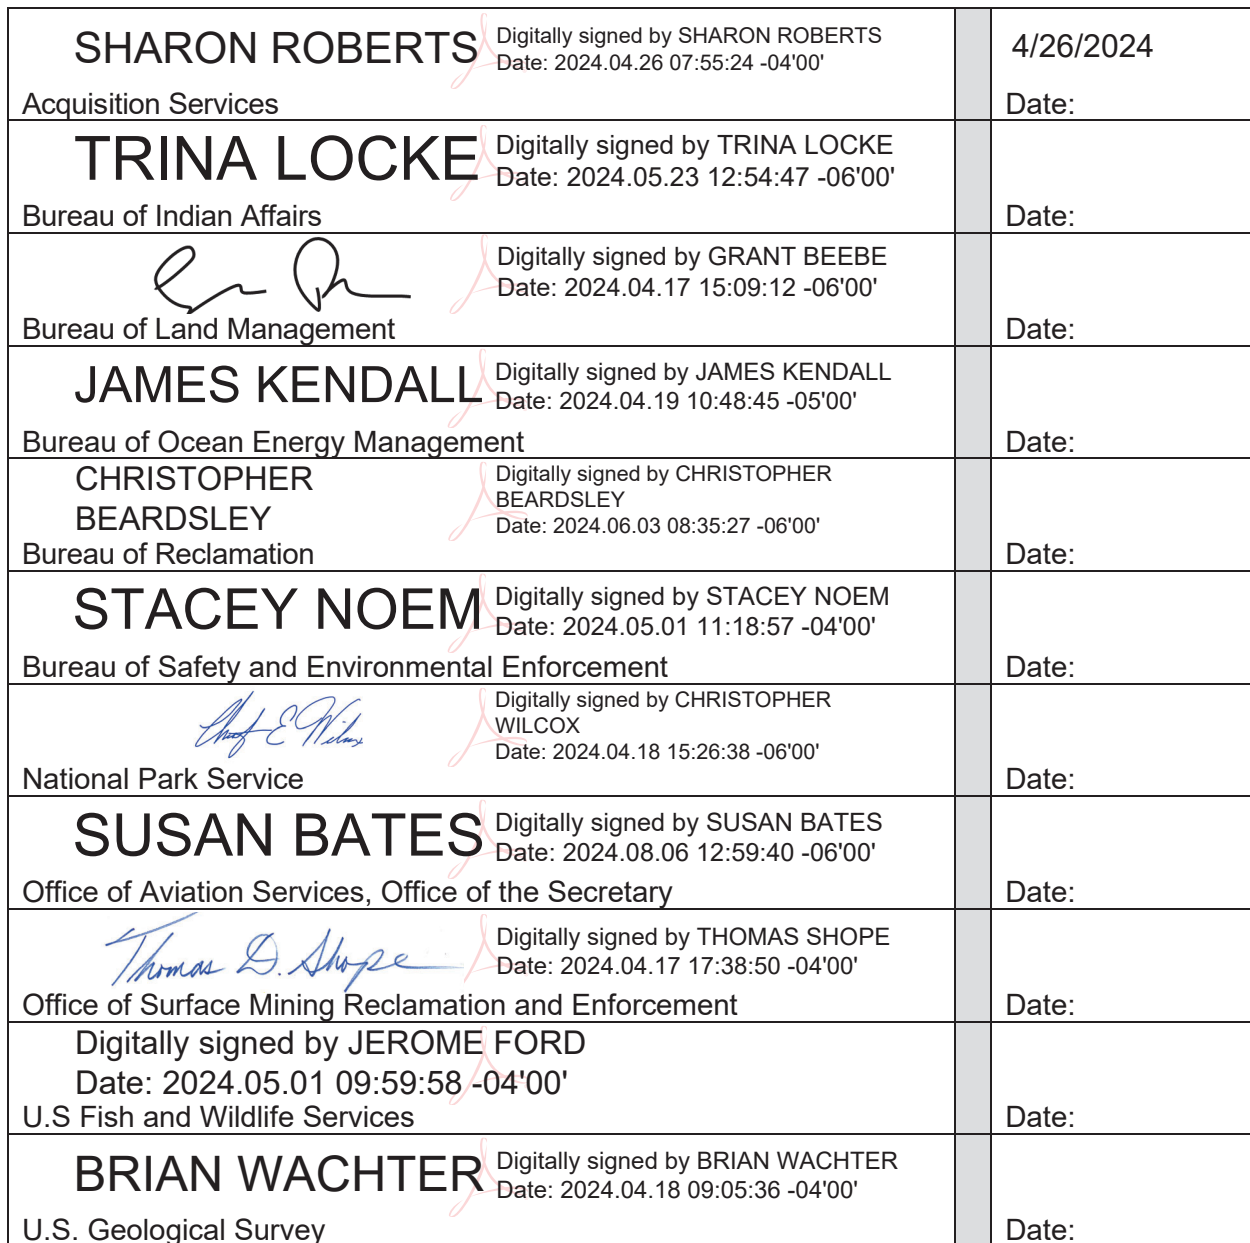 SHARON ROBERTS
Digitally signed by SHARON ROBERTS
Date: 2024.04.26 07:55:24 -04'00'
4/26/2024
Acquisition Services
Date:
TRINA LOCKE
Digitally signed by TRINA LOCKE
Date: 2024.05.23 12:54:47 -06'00'
Bureau of Indian Affairs
Date:
Digitally signed by GRANT BEEBE
Date: 2024.04.17 15:09:12 -06'00'
Bureau of Land Management
Date:
JAMES KENDALL
Digitally signed by JAMES KENDALL
Date: 2024.04.19 10:48:45 -05'00'
Bureau of Ocean Energy Management
Date:
CHRISTOPHER
BEARDSLEY
Digitally signed by CHRISTOPHER
BEARDSLEY
Date: 2024.06.03 08:35:27 -06'00'
Bureau of Reclamation
Date:
STACEY NOEM
Digitally signed by STACEY NOEM
Date: 2024.05.01 11:18:57 -04'00'
Bureau of Safety and Environmental Enforcement
Date:
Digitally signed by CHRISTOPHER
WILCOX
Date: 2024.04.18 15:26:38 -06'00'
National Park Service
Date:
SUSAN BATES
Digitally signed by SUSAN BATES
Date: 2024.08.06 12:59:40 -06'00'
Office of Aviation Services, Office of the Secretary
Date:
Thomas D. Shope
Digitally signed by THOMAS SHOPE
Date: 2024.04.17 17:38:50 -04'00'
Office of Surface Mining Reclamation and Enforcement
Date:
Digitally signed by JEROME FORD
Date: 2024.05.01 09:59:58 -04'00'
U.S Fish and Wildlife Services
Date:
BRIAN WACHTER
Digitally signed by BRIAN WACHTER
Date: 2024.04.18 09:05:36 -04'00'
U.S. Geological Survey
Date: